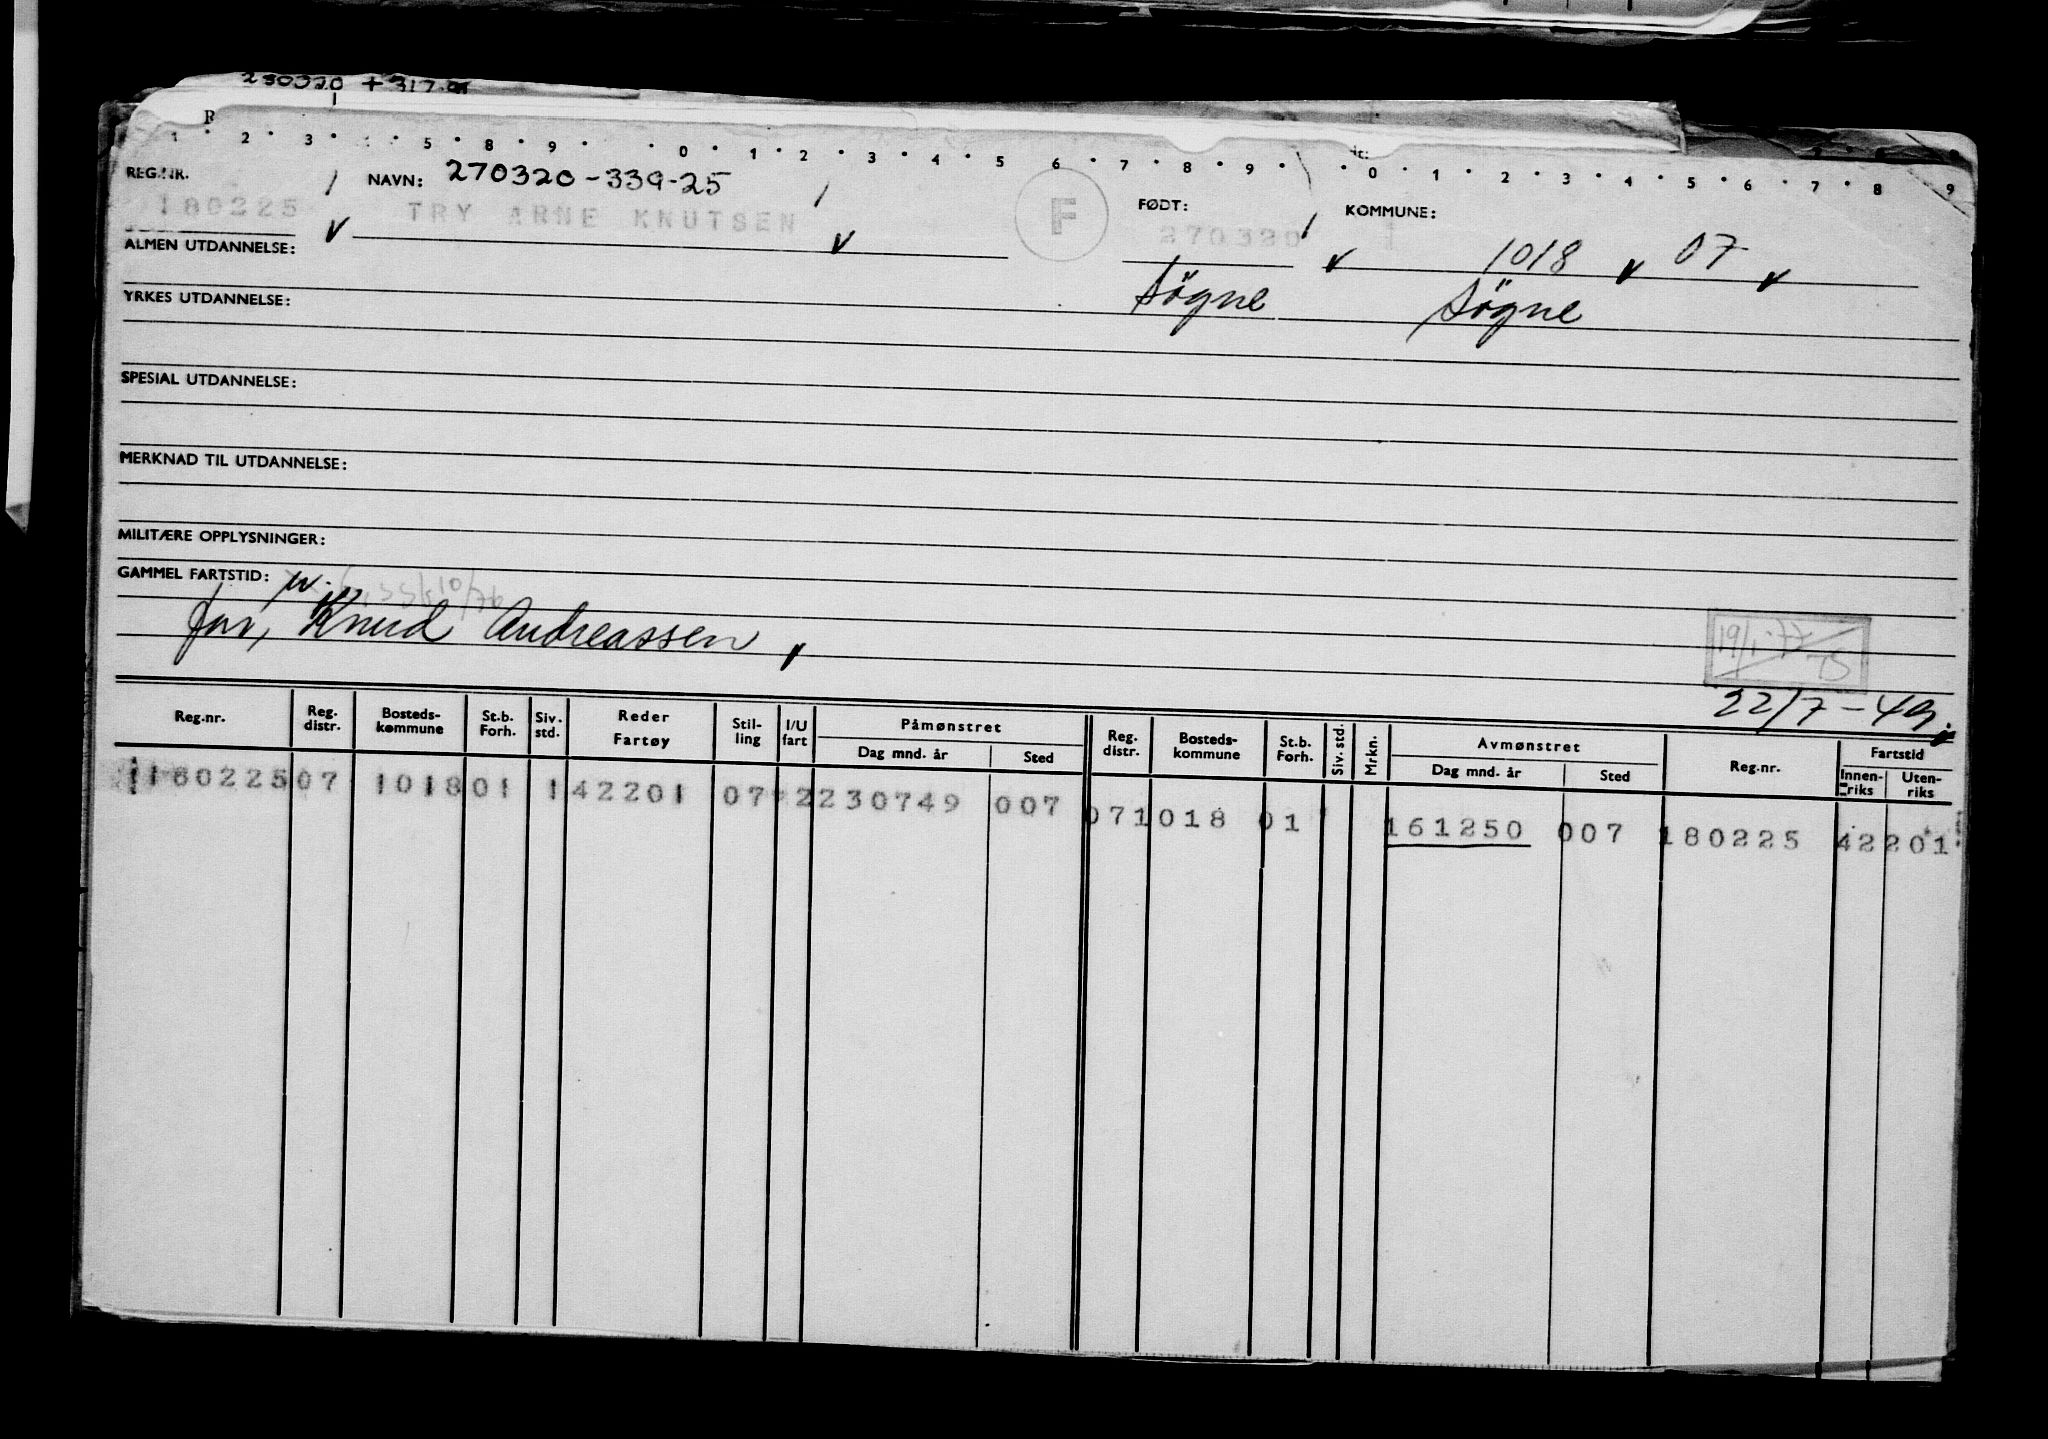 230320 + 317.01
R
1 2 3 5 8 9 0 1 2 3 4 5 6 7 8 9 0 1 2 3 4 5 6 7 8 9
REG.NR. NAVN: 270320-339-25 FØDT: KOMMUNE:
180225 TRY ARNE KNUTSEN F 270320 1 1018 07
ALMEN UTDANNELSE: Søgne Søgne
YRKES UTDANNELSE:
SPESIAL UTDANNELSE:
MERKNAD TIL UTDANNELSE:
MILITÆRE OPPLYSNINGER:
GAMMEL FARTSTID:
far, Knud Andreassen,
19/1-77
22/7-49.
Reg.nr. Reg. distr. Bosteds-kommune St.b. Forh. Siv. std. Reder Fartøy Stil-ling I/U fart Påmønstret Dag mnd. år Sted Reg. distr. Bosteds-kommune St.b. Forh. Siv. std. Mrkn. Avmønstret Dag mnd. år Sted Reg.nr. Fartstid Innen-riks Uten-riks
180225 07 1018 01 1 42201 07 2 230749 007 07 1018 01 161250 007 180225 42201